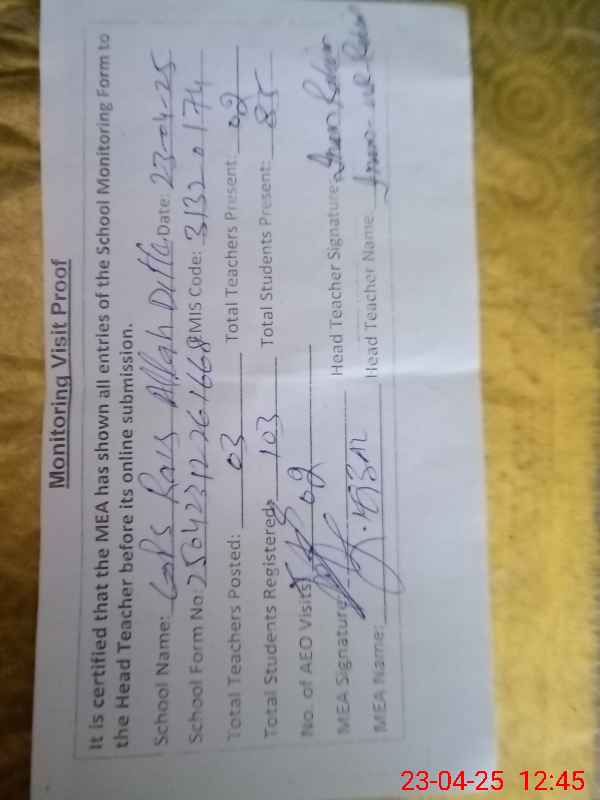 Monitoring Visit Proof
It is certified that the MEA has shown all entries of the School Monitoring Form to
the Head Teacher before its online submission.
School Name: GPS Rais Allah Ditta Date: 23-04-25
School Form No: EMIS Code: 31320174
Total Teachers Posted: 03 Total Teachers Present: 02
Total Students Registered: 103 Total Students Present: 85
No. of AEO Visits 02
MEA Signature: Head Teacher Signature:
MEA Name: Head Teacher Name:
23-04-25 12:45